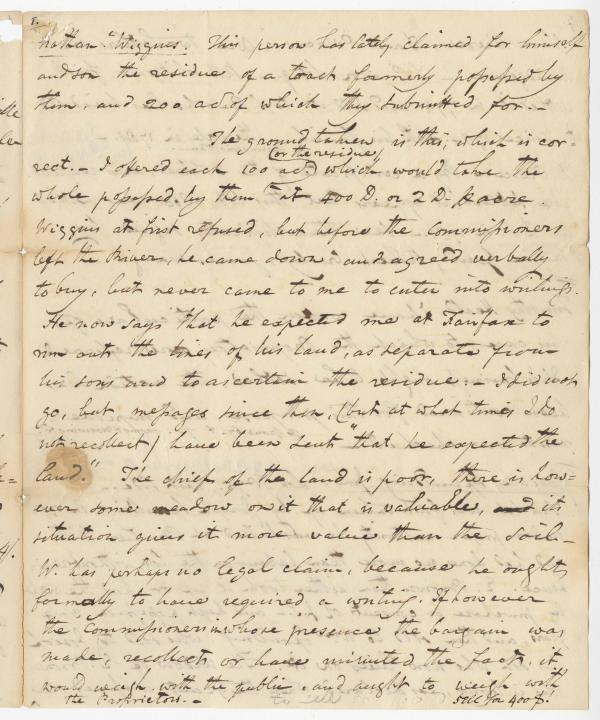 8.
nathan "Wiggins. This person has lately claimed for himself
and son the residue of a tract formerly possessed by
them, and 200 ac. of which they submitted for.-
The ground taken is this, which is cor-
rect. - I offered each 100 ac. (or the residue) which would take the
whole possessed by them at 400 D. or 2 D. p acre.
Wiggins at first refused, but before the commissioners
left the River, he came down and agreed verbally
to buy, but never came to me to enter into writings.
He now says that he expected me at Fairfax to
run out the lines of his land, as separate from
his sons and to ascertain the residue. - I did not
go, but messages since then, (but at what times I do
not recollect) have been sent "that he expected the
land." The chief of the land is poor, there is how-
ever some meadow on it that is valuable, and its
situation gives it more value than the soil -
W. has perhaps no legal claim, because he ought
formally to have required a writing. If however
the commissioners in whose presence the bargain was
made, recollects or have minuted the fact, it
would weigh with the public, and aught to weigh with
the Proprietors. - sell for 400$!